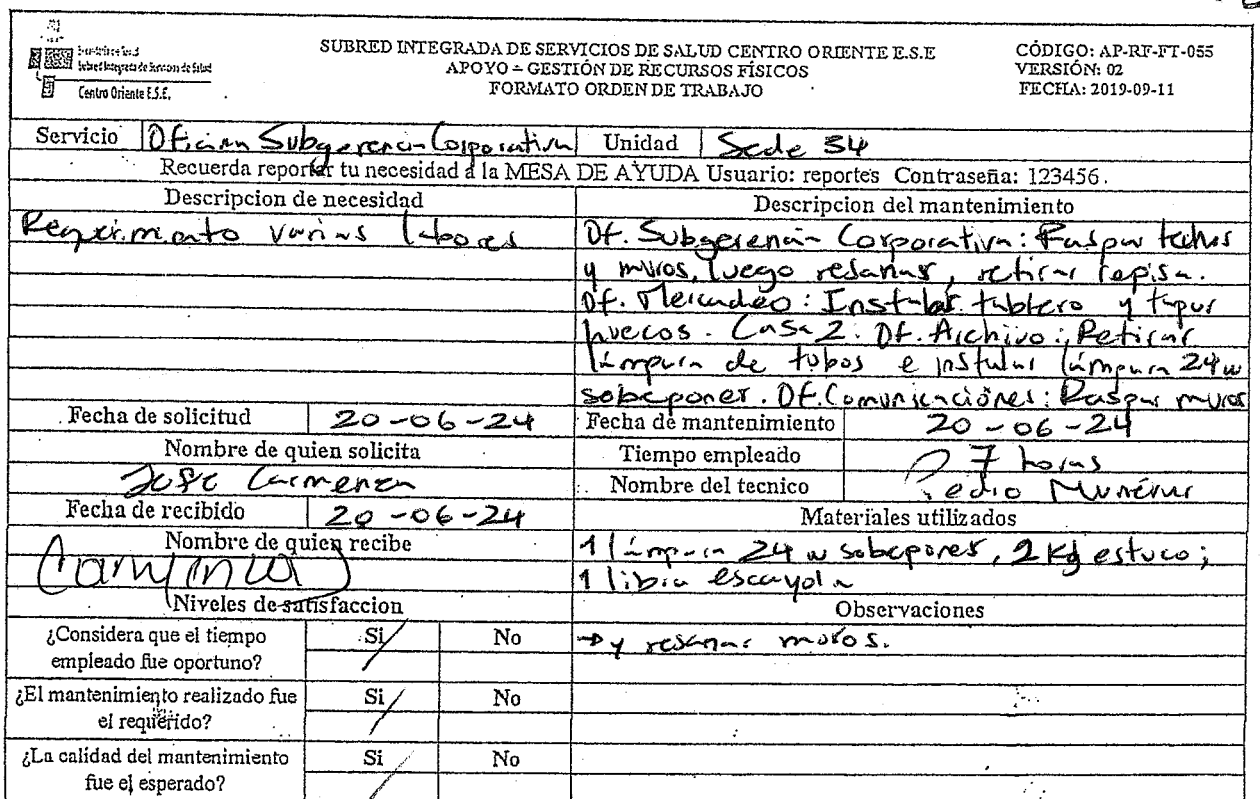 SUBRED INTEGRADA DE SERVICIOS DE SALUD CENTRO ORIENTE E.S.E
APOYO – GESTIÓN DE RECURSOS FÍSICOS
FORMATO ORDEN DE TRABAJO
CÓDIGO: AP-RF-FT-055
VERSIÓN: 02
FECHA: 2019-09-11
Centro Oriente E.S.E.
Servicio Oficina Subgerencia Corporativa Unidad Sede 34
Recuerda reportar tu necesidad a la MESA DE AYUDA Usuario: reportes Contraseña: 123456.
Descripcion de necesidad
Requerimiento varias labores
Descripcion del mantenimiento
Of. Subgerencia Corporativa: Raspar techos
y muros, luego resanar, retirar repisa.
Of. Mercadeo: Instalar tablero y tapar
huecos. Casa 2: Of. Archivo: Retirar
lámpara de tubos e instalar lámpara 24 w
sobreponer. Of. Comunicaciones: Raspar muros
Fecha de solicitud 20-06-24
Fecha de mantenimiento 20-06-24
Nombre de quien solicita
Tiempo empleado 7 horas
Jose
Nombre del tecnico Pedro
Fecha de recibido 20-06-24
Materiales utilizados
Nombre de quien recibe
1 lámpara 24 w sobreponer, 2 Kg estuco;
1 libra escayola
Niveles de satisfaccion
Observaciones
¿Considera que el tiempo
empleado fue oportuno?
Si No
→ y resanar muros.
¿El mantenimiento realizado fue
el requerido?
Si No
¿La calidad del mantenimiento
fue el esperado?
Si No